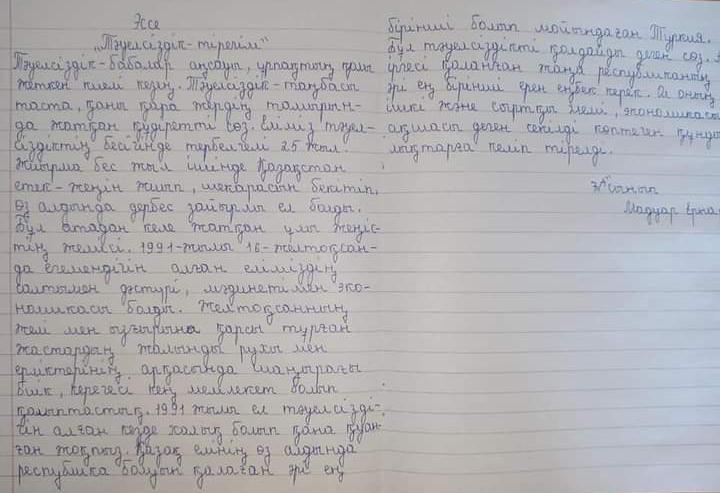 Эссе
„Тәуелсіздік-тірегім"
Тәуелсіздік-бабалар аңсауы, ұрпақтың қолы
жеткен киелі кезең. Тәуелсіздік-таңбасы
таста, қаны қара жердің тамырын-
да жатқан құдіретті сөз. Еліміз тәуел-
сіздіктің бесігінде тербелгелі 25 жыл.
Жиырма бес жыл ішінде Қазақстан
етек-жеңін жиып, шекарасын бекітіп,
өз алдында дербес зайырлы ел болды.
Бұл атадан келе жатқан ұлы жеңіс-
тің жемісі. 1991-жылы 16-желтоқсан-
да егемендігін алған еліміздің
салтымен дәстүрі, мәдинетімен эко-
номикасы болды. Желтоқсанның
желі мен ызғарына қарсы тұрған
жастардың жалынды рухы мен
ерліктерінің арқасында шаңырағы
биік, керегесі кең мемлекет болып
қалыптастық. 1991 жылы ел тәуелсізді-
гін алған кезде халық болып қана қуан-
ған жоқпыз. Қазақ елінің өз алдында
республика болуын қалаған әрі ең
бірінші болып мойындаған Түркия.
Бұл тәуелсіздікті қолдайды деген сөз.
іргесі қаланған жаңа республиканың
әрі ең бірінші ерен еңбек керек. Ал оның
ішкі және сыртқы әлемі, экономикасы
ақшасы деген секілді көптеген құнды-
лықтарға келіп тірелді.
сынып
Мадуар